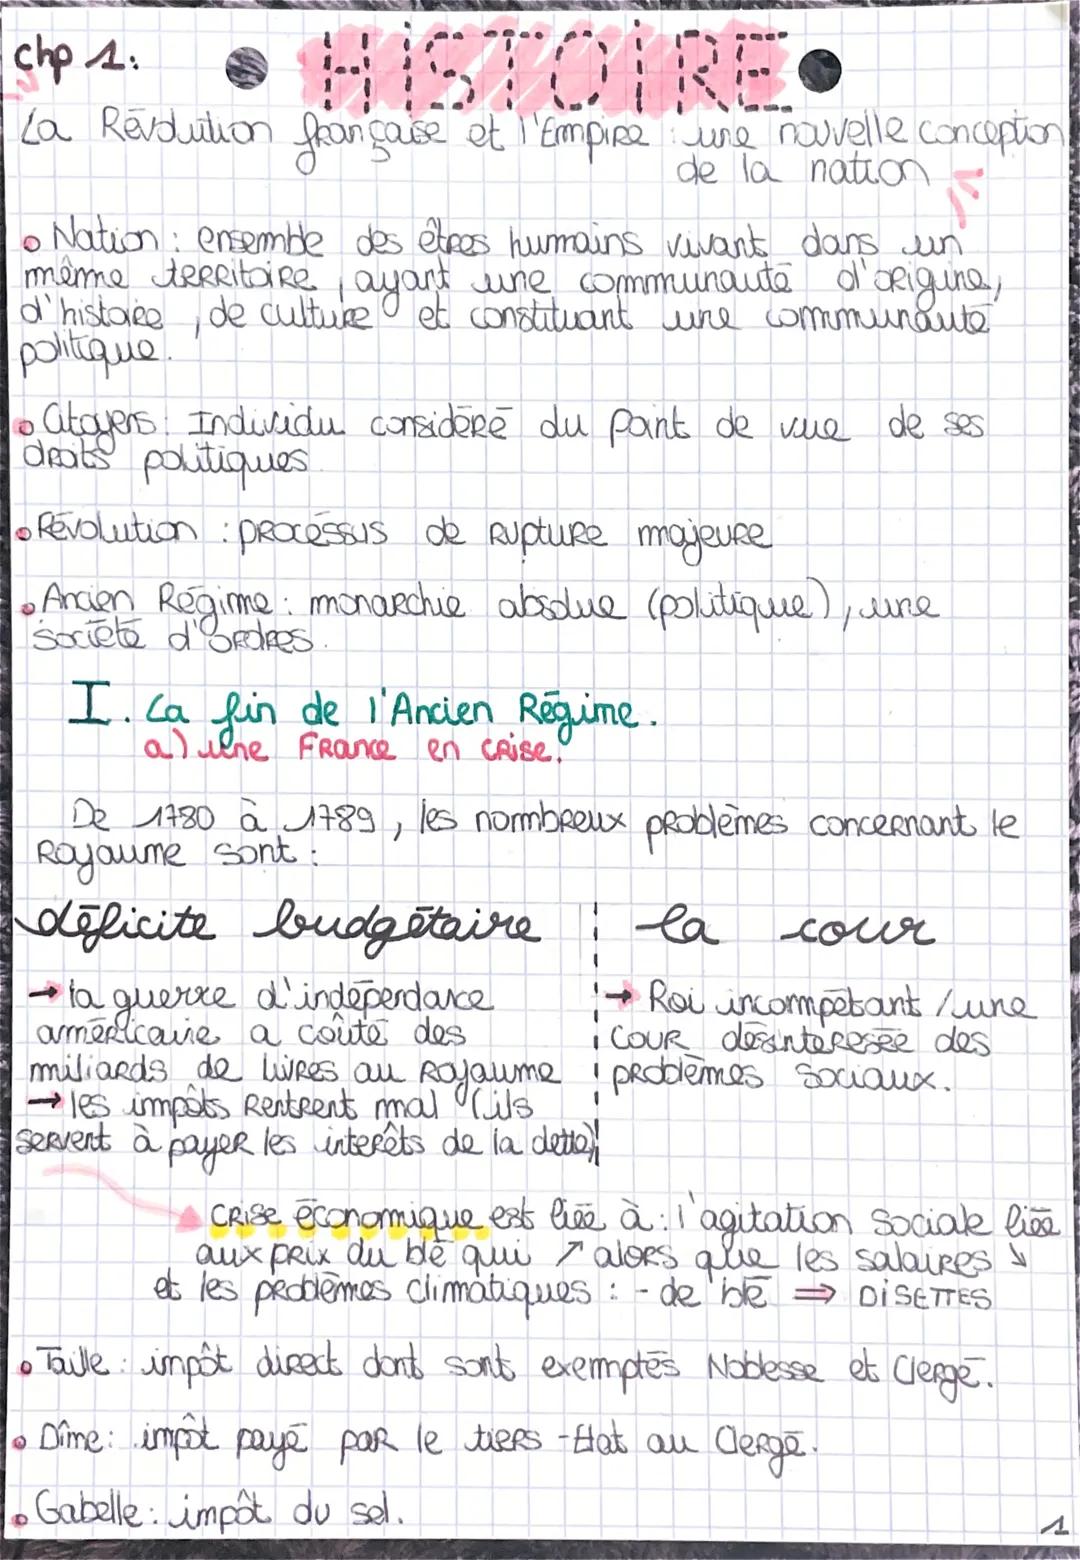 chp 1:
HISTOIRE
La Révolution française et l'Empire : une nouvelle conception
de la nation
Nation : ensemble des êtres humains vivant dans un
même territoire, ayant une communauté d'origine,
d'histoire, de culture et constituant une communauté
politique.
Citoyens : Individu considéré du point de vue de ses
droits politiques
Révolution : processus de rupture majeure
Ancien Régime : monarchie absolue (politique), une
société d'ordres.
I. La fin de l'Ancien Régime.
a) une France en crise.
De 1780 à 1789, les nombreux problèmes concernant le
Royaume sont :
déficite budgétaire
→ la guerre d'indépendance
américaine a coûté des
miliards de livres au Royaume
→ les impôts rentrent mal (ils
servent à payer les interêts de la dette)
la cour
→ Roi incompétant / une
cour désinteresée des
problèmes sociaux.
crise économique est liée à : l'agitation sociale liée
aux prix du blé qui ↗ alors que les salaires ↘
et les problèmes climatiques : - de blé ⇒ DISETTES
Taille : impôt direct dont sont exemptés Noblesse et Clergé.
Dîme : impôt payé par le tiers-Etat au Clergé.
Gabelle : impôt du sel.
1